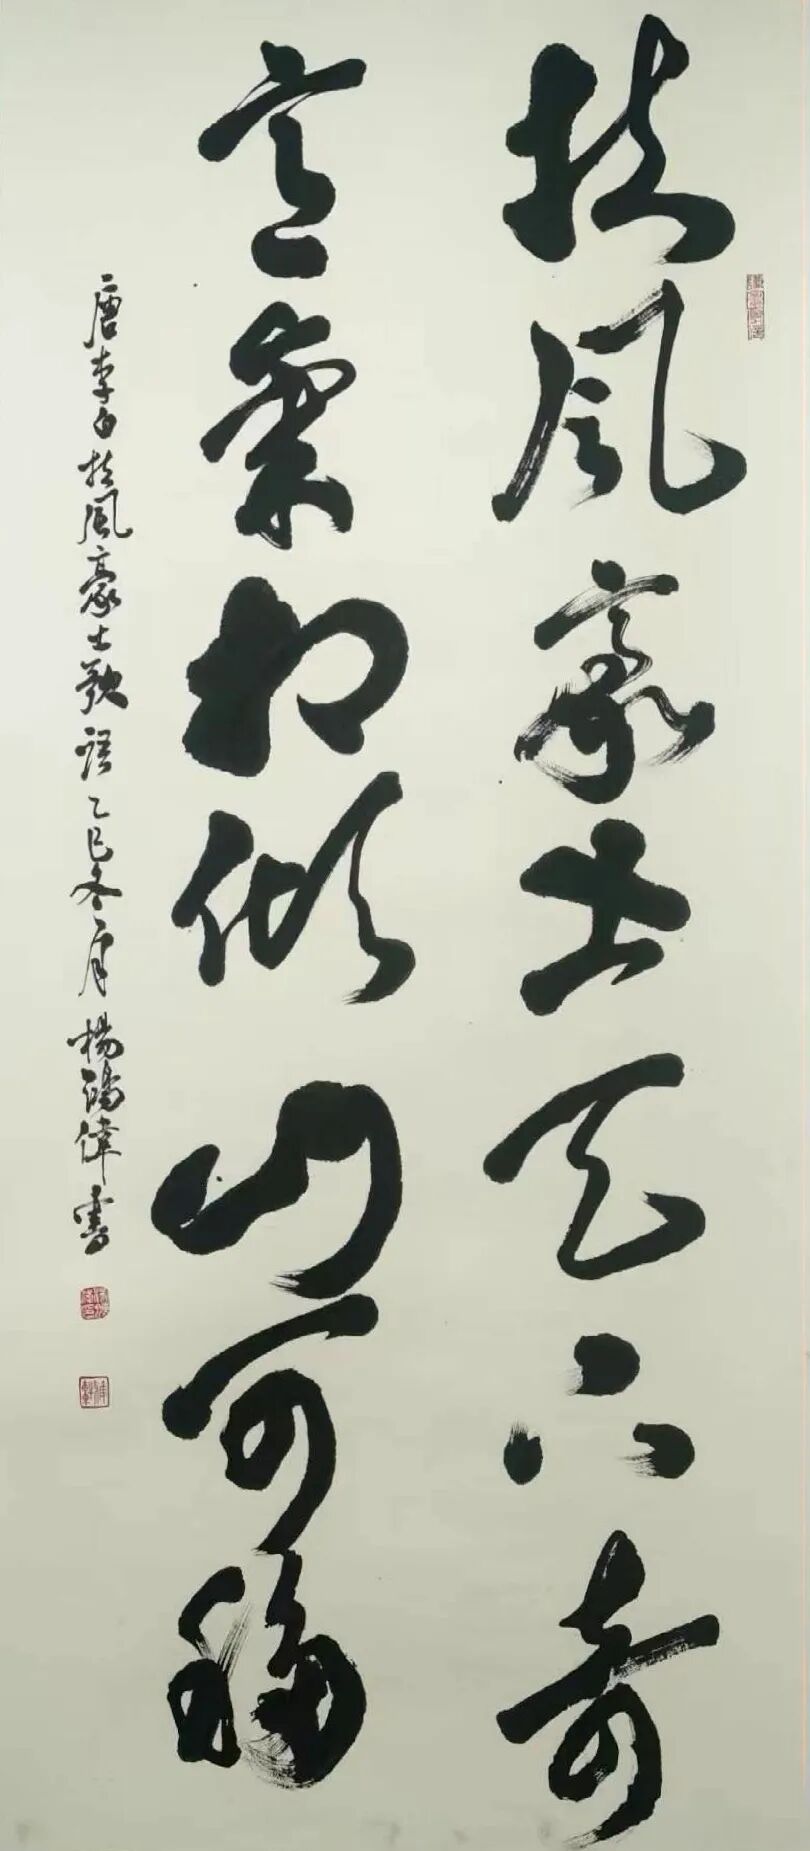 扶风豪士天下奇
意气相倾山可移
唐李白扶風豪士歌語乙巳冬月楊鴻偉書